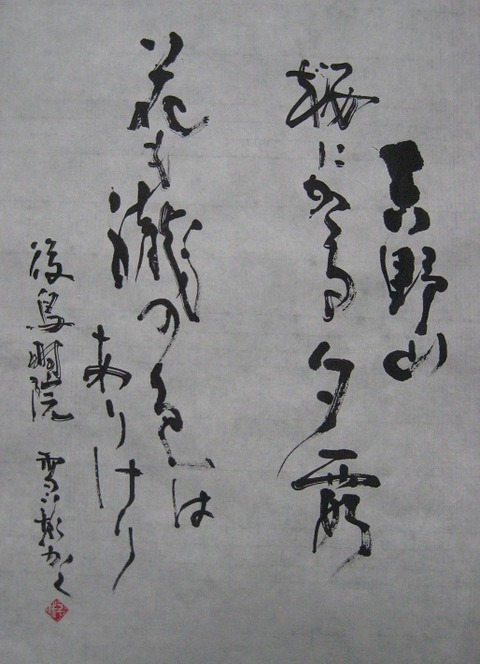 吉野山
桜にかゝる夕霞
花も朧の色は
ありけり
後鳥羽院 かく